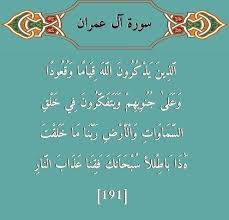 سورة آل عمران
ٱلَّذِينَ يَذْكُرُونَ ٱللَّهَ قِيَامًا وَقُعُودًا
وَعَلَىٰ جُنُوبِهِمْ وَيَتَفَكَّرُونَ فِي خَلْقِ
ٱلسَّمَاوَاتِ وَٱلْأَرْضِ رَبَّنَا مَا خَلَقْتَ
هَٰذَا بَاطِلًا سُبْحَانَكَ فَقِنَا عَذَابَ ٱلنَّارِ
[191]